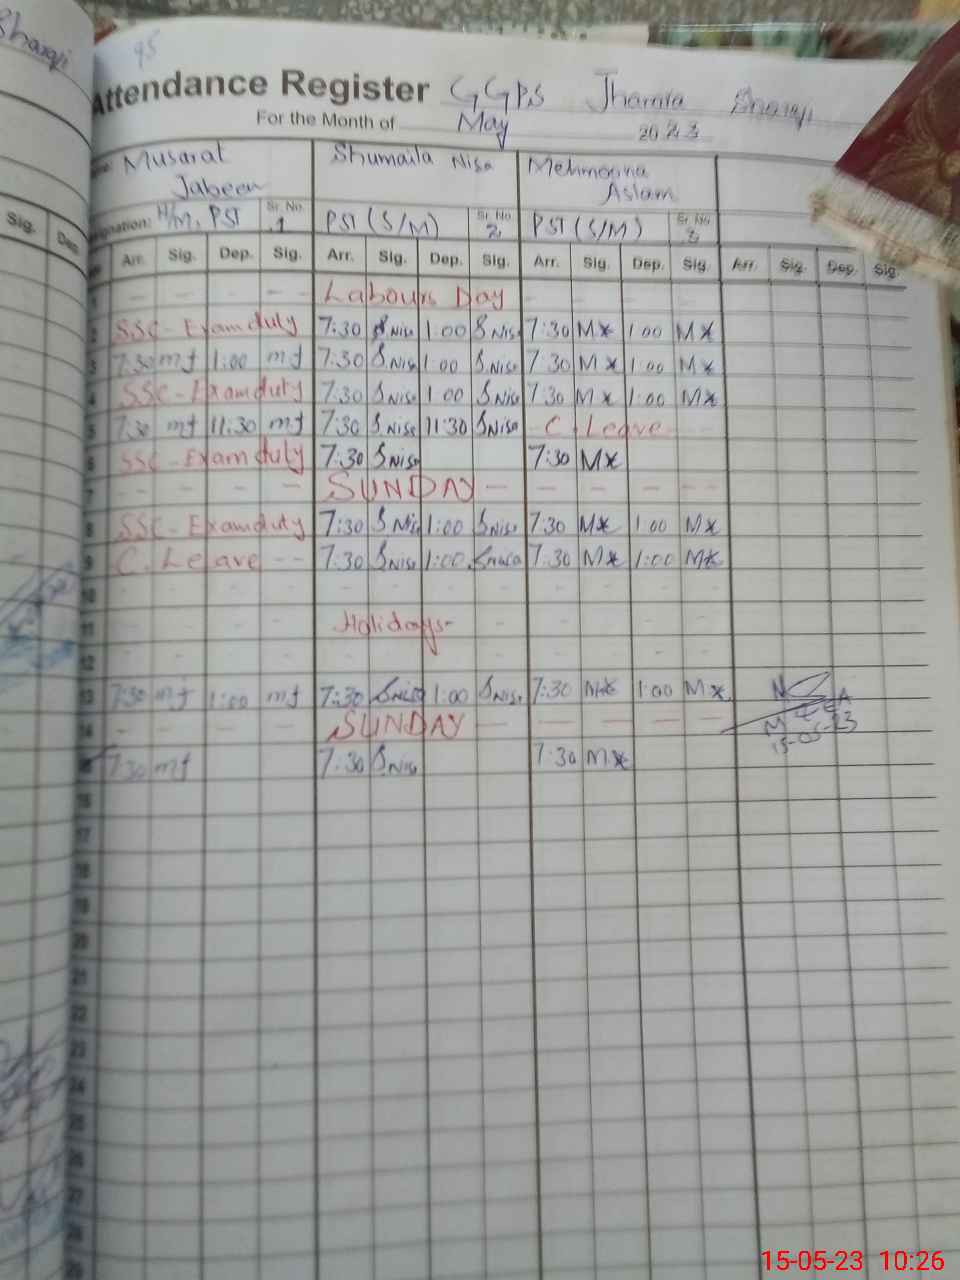 Sharaji
95
Attendance Register GGPS Jharala Sharaji
For the Month of May 2023
Musarat Jabeen Shumaila Nisa Mehmoona Aslam
Designation: H/M, PST Sr. No. 1 PST (S/M) Sr. No. 2 PST (S/M) Sr. No. 3
Sig. Dep. Arr. Sig. Dep. Sig. Arr. Sig. Dep. Sig. Arr. Sig. Dep. Sig. Arr. Sig. Dep. Sig.
1 - - - - Labours Day - - - -
2 SSC - Exam duty 7:30 SNisa 1:00 SNisa 7:30 M* 1:00 M*
3 7:30 mf 1:00 mf 7:30 SNisa 1:00 SNisa 7:30 M* 1:00 M*
4 SSC - Exam duty 7:30 SNisa 1:00 SNisa 7:30 M* 1:00 M*
5 7:30 mf 11:30 mf 7:30 SNisa 11:30 SNisa - C Leave - -
6 SSC - Exam duty 7:30 SNisa 7:30 M*
7 - - - - SUNDAY - - - - -
8 SSC - Exam duty 7:30 SNisa 1:00 SNisa 7:30 M* 1:00 M*
9 C. Leave - - 7:30 SNisa 1:00 SNisa 7:30 M* 1:00 M*
10
11 Holidays-
12
13 7:30 mf 1:00 mf 7:30 SNisa 1:00 SNisa 7:30 M* 1:00 M*
14 - - - - SUNDAY - - - - -
15-05-23
7:30 mf 7:30 SNisa 7:30 M*
15
17
18
19
20
21
22
23
24
25
26
27
28
15-05-23 10:26